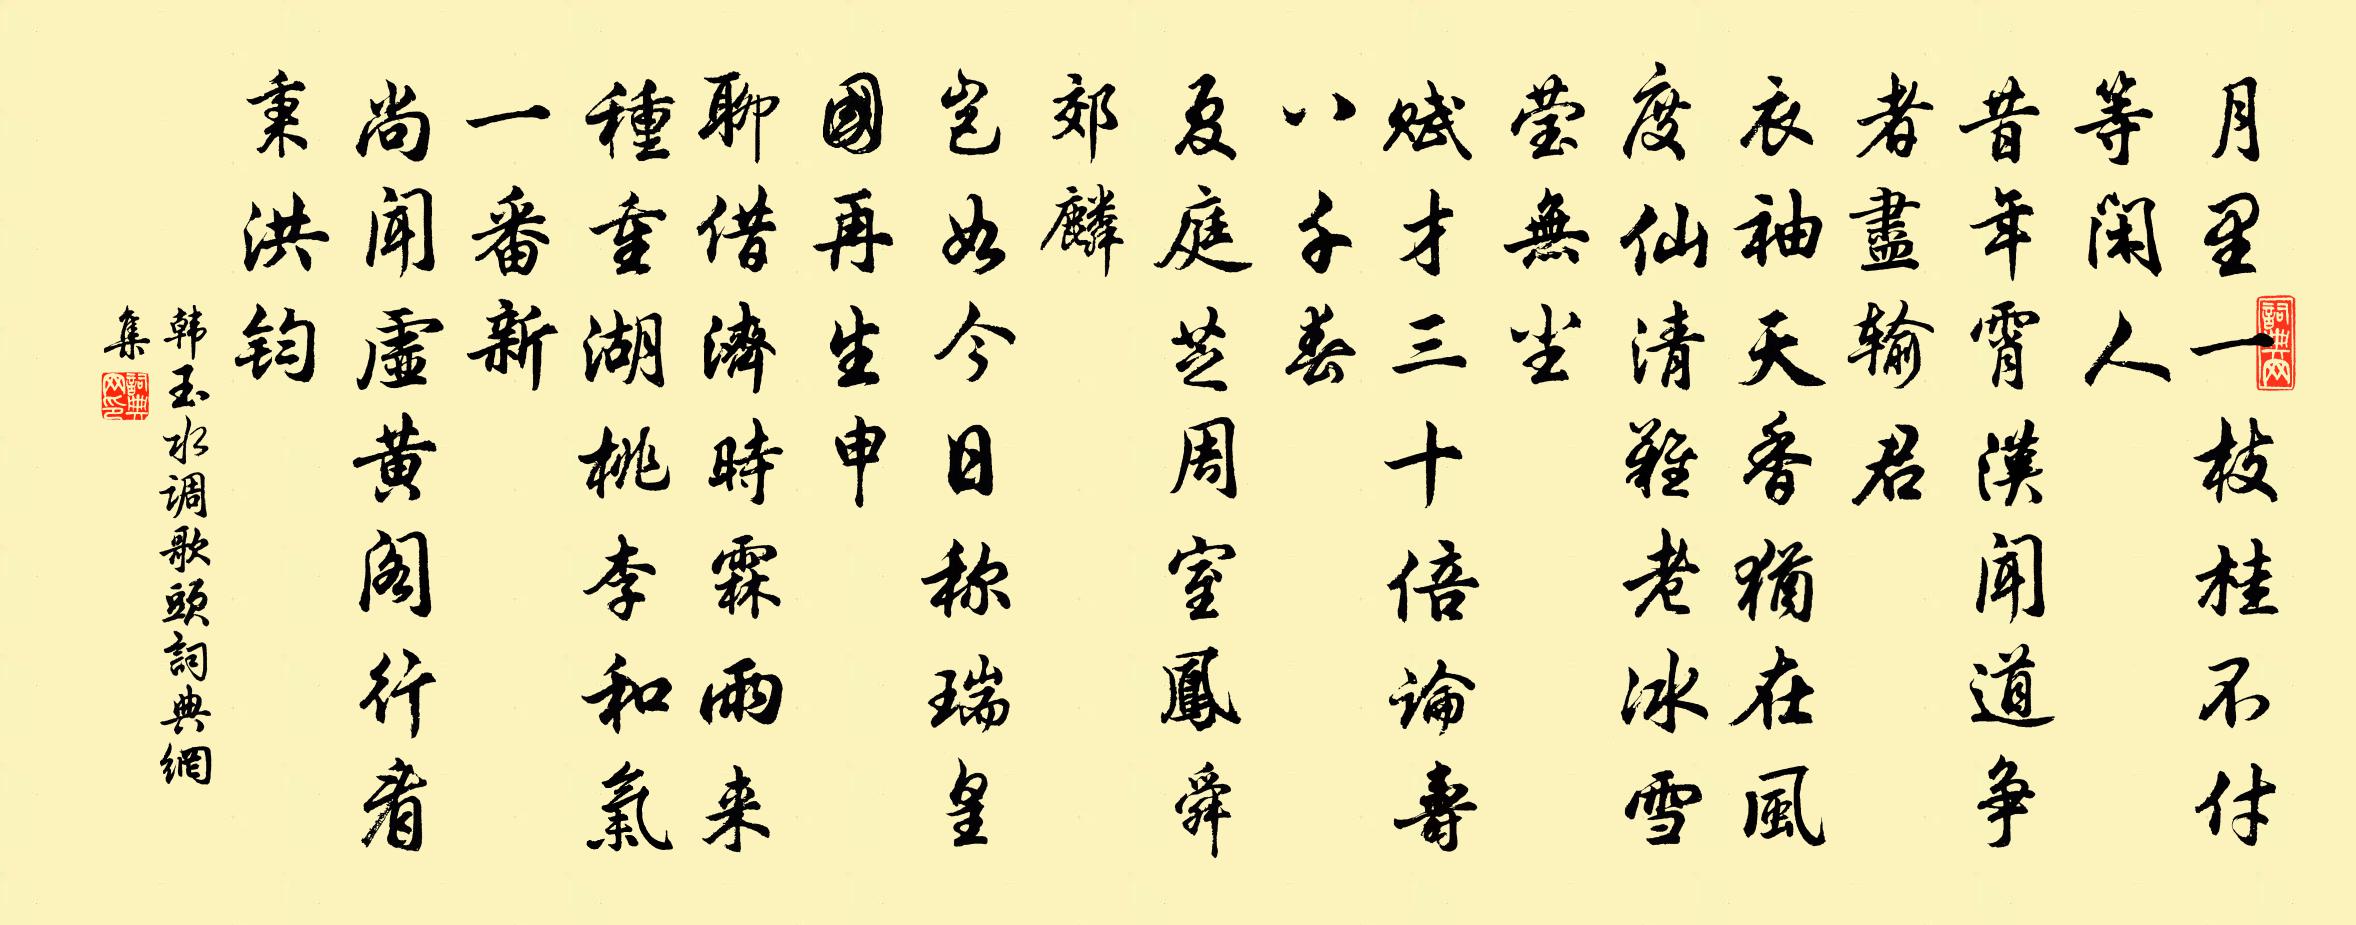 月里一枝桂不付
等閑人
昔年霄漢聞道爭
者盡输君
衣袖天香猶在風
度仙清難老冰雪
莹無尘
赋才三十倍論壽
八千春
夏庭芝周室鳳舜
郊麟
岂如今日称瑞皇
國再生申
聊借濟時霖雨来
種重湖桃李和氣
一番新
尚聞虛黄阁行看
秉洪钧
韩玉水调歌頭詞典網
集
詞典网
詞典网印